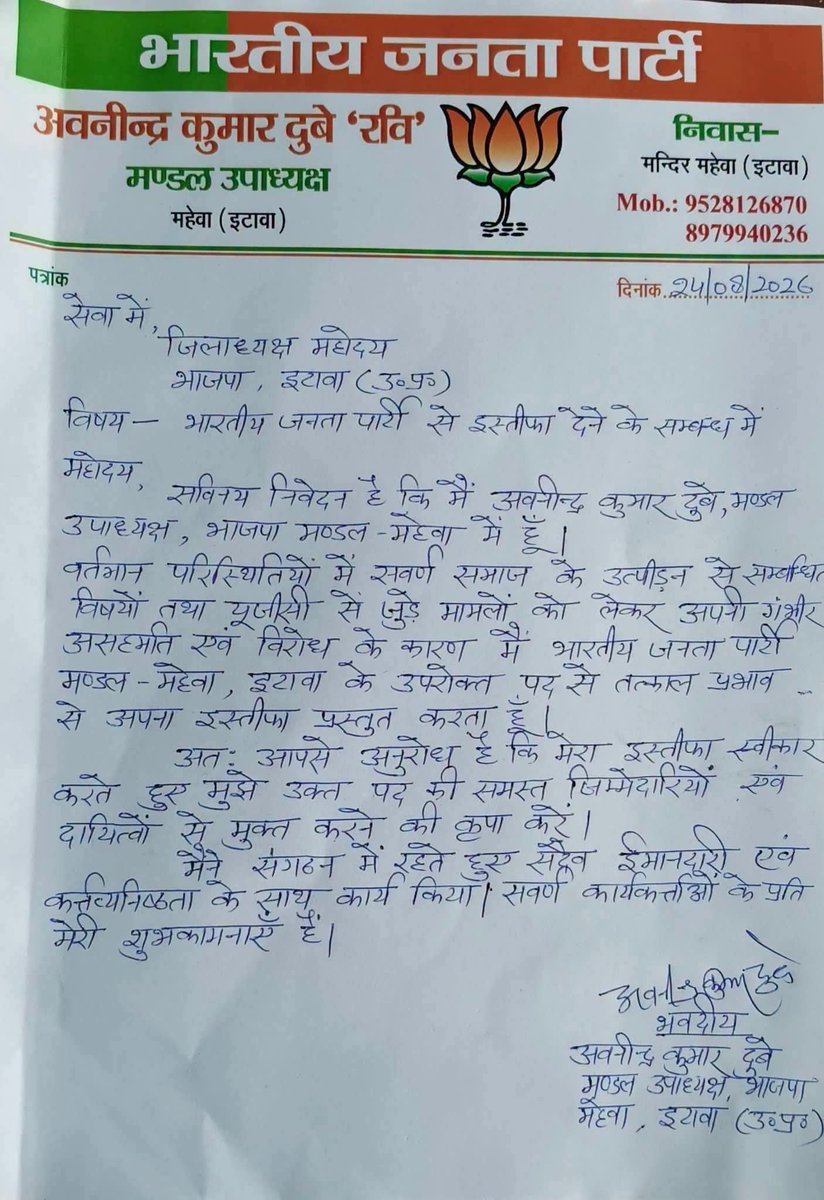 भारतीय जनता पार्टी
अवनीन्द्र कुमार दुबे ‘रवि’
मण्डल उपाध्यक्ष
महेवा (इटावा)
निवास–
मन्दिर महेवा (इटावा)
Mob.: 9528126870
8979940236
पत्रांक
दिनांक..24/08/2026
सेवा में,
जिलाध्यक्ष महोदय
भाजपा, इटावा (उ०प्र०)
विषय – भारतीय जनता पार्टी से इस्तीफा देने के सम्बन्ध में
महोदय,
सविनय निवेदन है कि मैं अवनीन्द्र कुमार दुबे, मण्डल
उपाध्यक्ष, भाजपा मण्डल - महेवा में हूँ।
वर्तमान परिस्थितियों में सवर्ण समाज के उत्पीड़न से सम्बन्धित
विषयों तथा यूजीसी से जुड़े मामलों को लेकर अपनी गंभीर
असहमति एवं विरोध के कारण मैं भारतीय जनता पार्टी
मण्डल - महेवा, इटावा के उपरोक्त पद से तत्काल प्रभाव
से अपना इस्तीफा प्रस्तुत करता हूँ।
अतः आपसे अनुरोध है कि मेरा इस्तीफा स्वीकार
करते हुए मुझे उक्त पद की समस्त जिम्मेदारियों एवं
दायित्वों से मुक्त करने की कृपा करें।
मैंने संगठन में रहते हुए सदैव ईमानदारी एवं
कर्त्तव्यनिष्ठता के साथ कार्य किया। सवर्ण कार्यकर्त्ताओं के प्रति
मेरी शुभकामनाएँ हैं।
अवनीन्द्र कुमार दुबे
भवदीय
अवनीन्द्र कुमार दुबे
मण्डल उपाध्यक्ष, भाजपा
महेवा, इटावा (उ०प्र०)